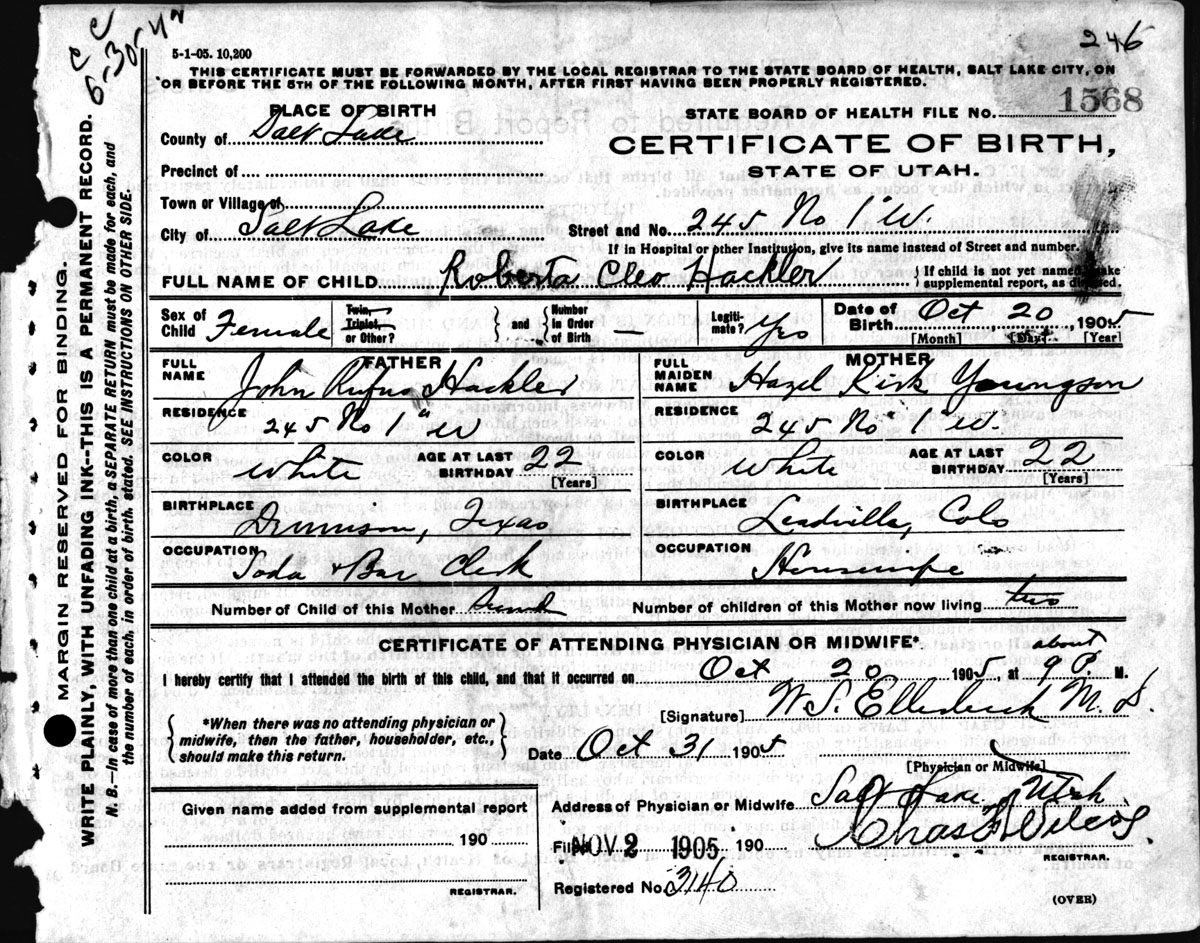 C C
5-30-42
246
5-1-05. 10,200
THIS CERTIFICATE MUST BE FORWARDED BY THE LOCAL REGISTRAR TO THE STATE BOARD OF HEALTH, SALT LAKE CITY, ON
OR BEFORE THE 5TH OF THE FOLLOWING MONTH, AFTER FIRST HAVING BEEN PROPERLY REGISTERED.
PLACE OF BIRTH
STATE BOARD OF HEALTH FILE NO. 1568
County of Salt Lake
CERTIFICATE OF BIRTH,
STATE OF UTAH.
Precinct of
Town or Village of
City of Salt Lake
Street and No. 245 No 1" W.
If in Hospital or other Institution, give its name instead of Street and number.
FULL NAME OF CHILD Roberta Cleo Hackler
{ If child is not yet named, make
supplemental report, as directed.
Sex of Child Female
Twin, Triplet, or Other?
} and { Number in Order of Birth —
Legiti-mate? Yes
Date of Birth Oct, 20, 1905
[Month] [Day] [Year]
FATHER
MOTHER
FULL NAME John Rufus Hackler
FULL MAIDEN NAME Hazel Kirk Youngson
RESIDENCE 245 No 1" W
RESIDENCE 245 No 1" W.
COLOR White
AGE AT LAST BIRTHDAY 22
[Years]
COLOR White
AGE AT LAST BIRTHDAY 22
[Years]
BIRTHPLACE Texas
BIRTHPLACE Leadville, Colo
OCCUPATION Soda & Bar Clerk
OCCUPATION Housewife
Number of Child of this Mother Second
Number of children of this Mother now living two
CERTIFICATE OF ATTENDING PHYSICIAN OR MIDWIFE*.
I hereby certify that I attended the birth of this child, and that it occurred on Oct 20 1905, at about 9 P. M.
[Signature] W. S. Ellerbeck M. D.
{ *When there was no attending physician or
midwife, then the father, householder, etc.,
should make this return. }
Date Oct 31 1905
[Physician or Midwife]
Given name added from supplemental report
190
REGISTRAR.
Address of Physician or Midwife Salt Lake, Utah
Filed NOV 2 1905 190
Chas F Wilcox.
REGISTRAR.
Registered No. 3140
(OVER)
MARGIN RESERVED FOR BINDING.
WRITE PLAINLY, WITH UNFADING INK--THIS IS A PERMANENT RECORD.
N. B.--In case of more than one child at a birth, a SEPARATE RETURN must be made for each, and
the number of each, in order of birth, stated. SEE INSTRUCTIONS ON OTHER SIDE.